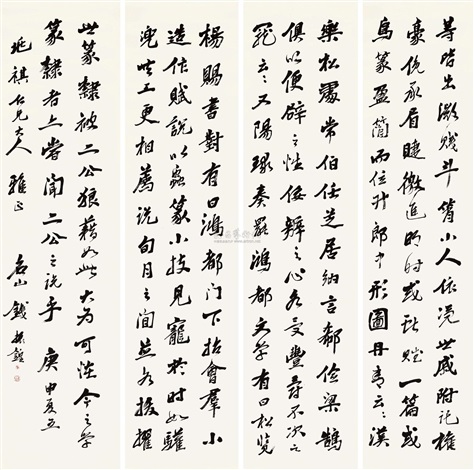 等皆出微賤斗筲小人依憑世戚附託權
豪俛承眉睫徼進明時或獻賦一篇或
鳥篆盈簡而位升郎中形圖丹青云云漢
樂松處常伯任芝居納言郄儉梁鵠
俱以便辟之性佞辯之心各受豐爵不次之
寵云云又陽球奏罷鴻都文學有曰松覽
楊賜書對有曰鴻都門下招會羣小
造作賦說以蟲篆小技見寵於時如驩
兜共工更相薦說旬月之間並各拔擢
世篆隸被二公狼藉如此大為可怪今之學
篆隸者亦嘗聞二公之說乎 庚申夏五
兆祺仁兄大人雅正 名山錢振鍠